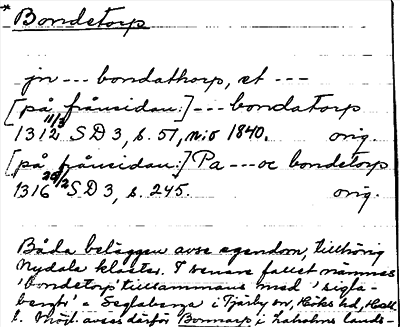 * Bondetorp
jn --- bondathorp, et ---
[på frånsidan:] --- bondatorp
1312 11/3 SD 3, s. 51, nio 1840. orig.
[på frånsidan:] Pa --- oc bondetorp
1316 26/2 SD 3, s. 245. orig.
Båda beläggen avse egendom, tillhörig
Nydala kloster. I senare fallet nämnes
'bondetorp' tillsammans med 'sigla-
bergh' = Seglaberga i Tjärby sn, Höks hd, Hall.
l. Möjl. avses därför Bonnarp i Laholms lands-